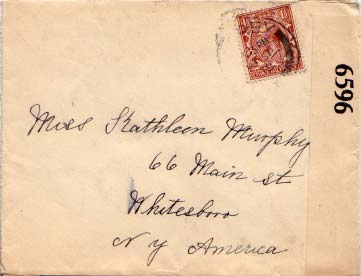 Miss Kathleen Murphy
66 Main st
Whitesboro
N y America
6596